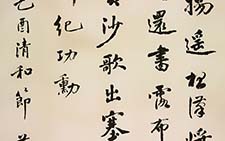 揚遥松漠将
還書露布
沙歌出塞
紀功勳
乙酉清和節